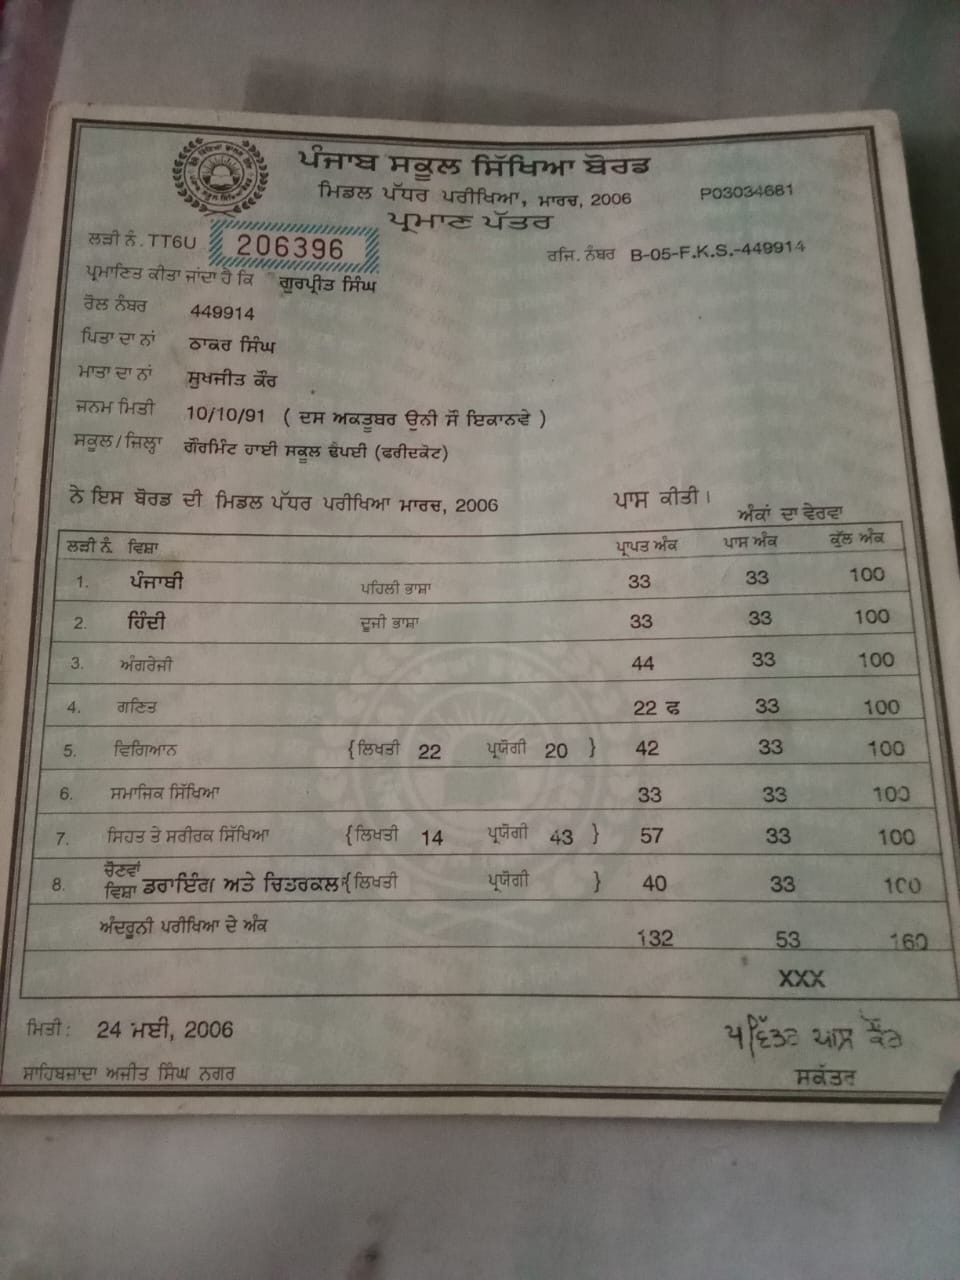 ਪੰਜਾਬ ਸਕੂਲ ਸਿੱਖਿਆ ਬੋਰਡ
ਮਿਡਲ ਪੱਧਰ ਪਰੀਖਿਆ, ਮਾਰਚ, 2006
P03034681
ਪ੍ਰਮਾਣ ਪੱਤਰ
ਲੜੀ ਨੰ. TT6U 206396
ਰਜਿ. ਨੰਬਰ B-05-F.K.S.-449914
ਪ੍ਰਮਾਣਿਤ ਕੀਤਾ ਜਾਂਦਾ ਹੈ ਕਿ ਗੁਰਪ੍ਰੀਤ ਸਿੰਘ
ਰੋਲ ਨੰਬਰ 449914
ਪਿਤਾ ਦਾ ਨਾਂ ਠਾਕਰ ਸਿੰਘ
ਮਾਤਾ ਦਾ ਨਾਂ ਸੁਖਜੀਤ ਕੌਰ
ਜਨਮ ਮਿਤੀ 10/10/91 ( ਦਸ ਅਕਤੂਬਰ ਉਨੀ ਸੌ ਇਕਾਨਵੇ )
ਸਕੂਲ/ਜਿਲ੍ਹਾ ਗੌਰਮਿੰਟ ਹਾਈ ਸਕੂਲ ਢੈਪਈ (ਫਰੀਦਕੋਟ)
ਨੇ ਇਸ ਬੋਰਡ ਦੀ ਮਿਡਲ ਪੱਧਰ ਪਰੀਖਿਆ ਮਾਰਚ, 2006 ਪਾਸ ਕੀਤੀ।
ਅੰਕਾਂ ਦਾ ਵੇਰਵਾ
ਲੜੀ ਨੰ. ਵਿਸ਼ਾ ਪ੍ਰਾਪਤ ਅੰਕ ਪਾਸ ਅੰਕ ਕੁੱਲ ਅੰਕ
1. ਪੰਜਾਬੀ ਪਹਿਲੀ ਭਾਸ਼ਾ 33 33 100
2. ਹਿੰਦੀ ਦੂਜੀ ਭਾਸ਼ਾ 33 33 100
3. ਅੰਗਰੇਜੀ 44 33 100
4. ਗਣਿਤ 22 ਫ 33 100
5. ਵਿਗਿਆਨ {ਲਿਖਤੀ 22 ਪ੍ਰਯੋਗੀ 20 } 42 33 100
6. ਸਮਾਜਿਕ ਸਿੱਖਿਆ 33 33 100
7. ਸਿਹਤ ਤੇ ਸਰੀਰਕ ਸਿੱਖਿਆ {ਲਿਖਤੀ 14 ਪ੍ਰਯੋਗੀ 43 } 57 33 100
8. ਚੋਣਵਾਂ ਵਿਸ਼ਾ ਡਰਾਇੰਗ ਅਤੇ ਚਿਤਰਕਲਾ {ਲਿਖਤੀ ਪ੍ਰਯੋਗੀ } 40 33 100
ਅੰਦਰੂਨੀ ਪਰੀਖਿਆ ਦੇ ਅੰਕ 132 53 160
XXX
ਮਿਤੀ: 24 ਮਈ, 2006
ਪਵਿੱਤਰ ਪਾਲ ਕੌਰ
ਸਾਹਿਬਜ਼ਾਦਾ ਅਜੀਤ ਸਿੰਘ ਨਗਰ
ਸਕੱਤਰ